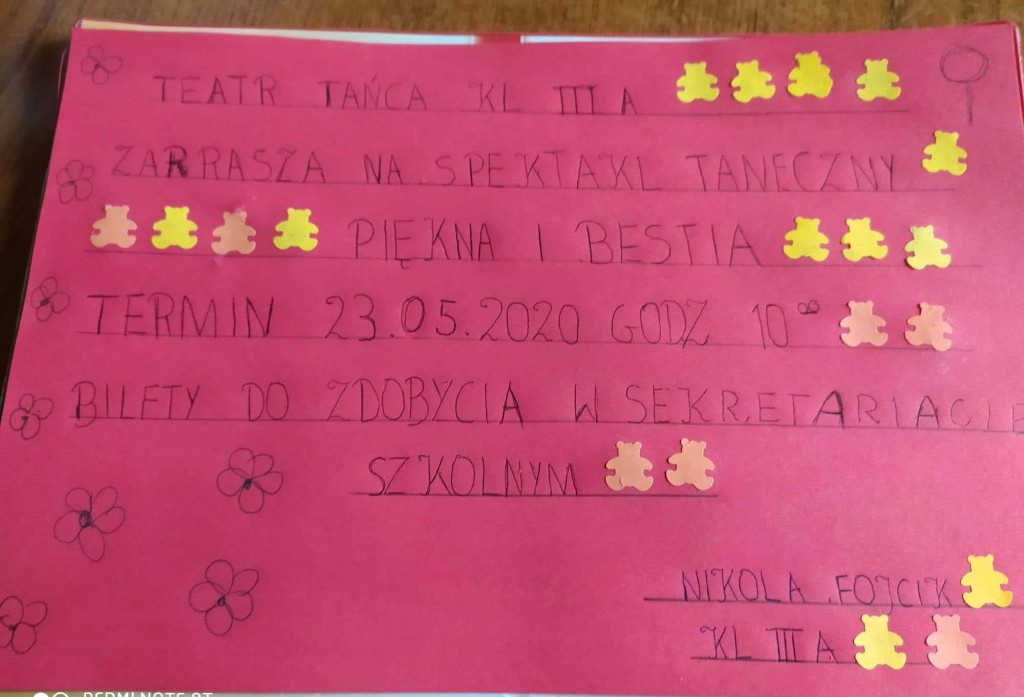 TEATR TAŃCA KL III A
ZARRASZA NA SPEKTAKL TANECZNY
PIĘKNA I BESTIA
TERMIN 23.05.2020 GODZ 10⁰⁰
BILETY DO ZDOBYCIA W SEKRETARIACIE
SZKOLNYM
NIKOLA FOJCIK
KL III A
REDMI NOTE 8T